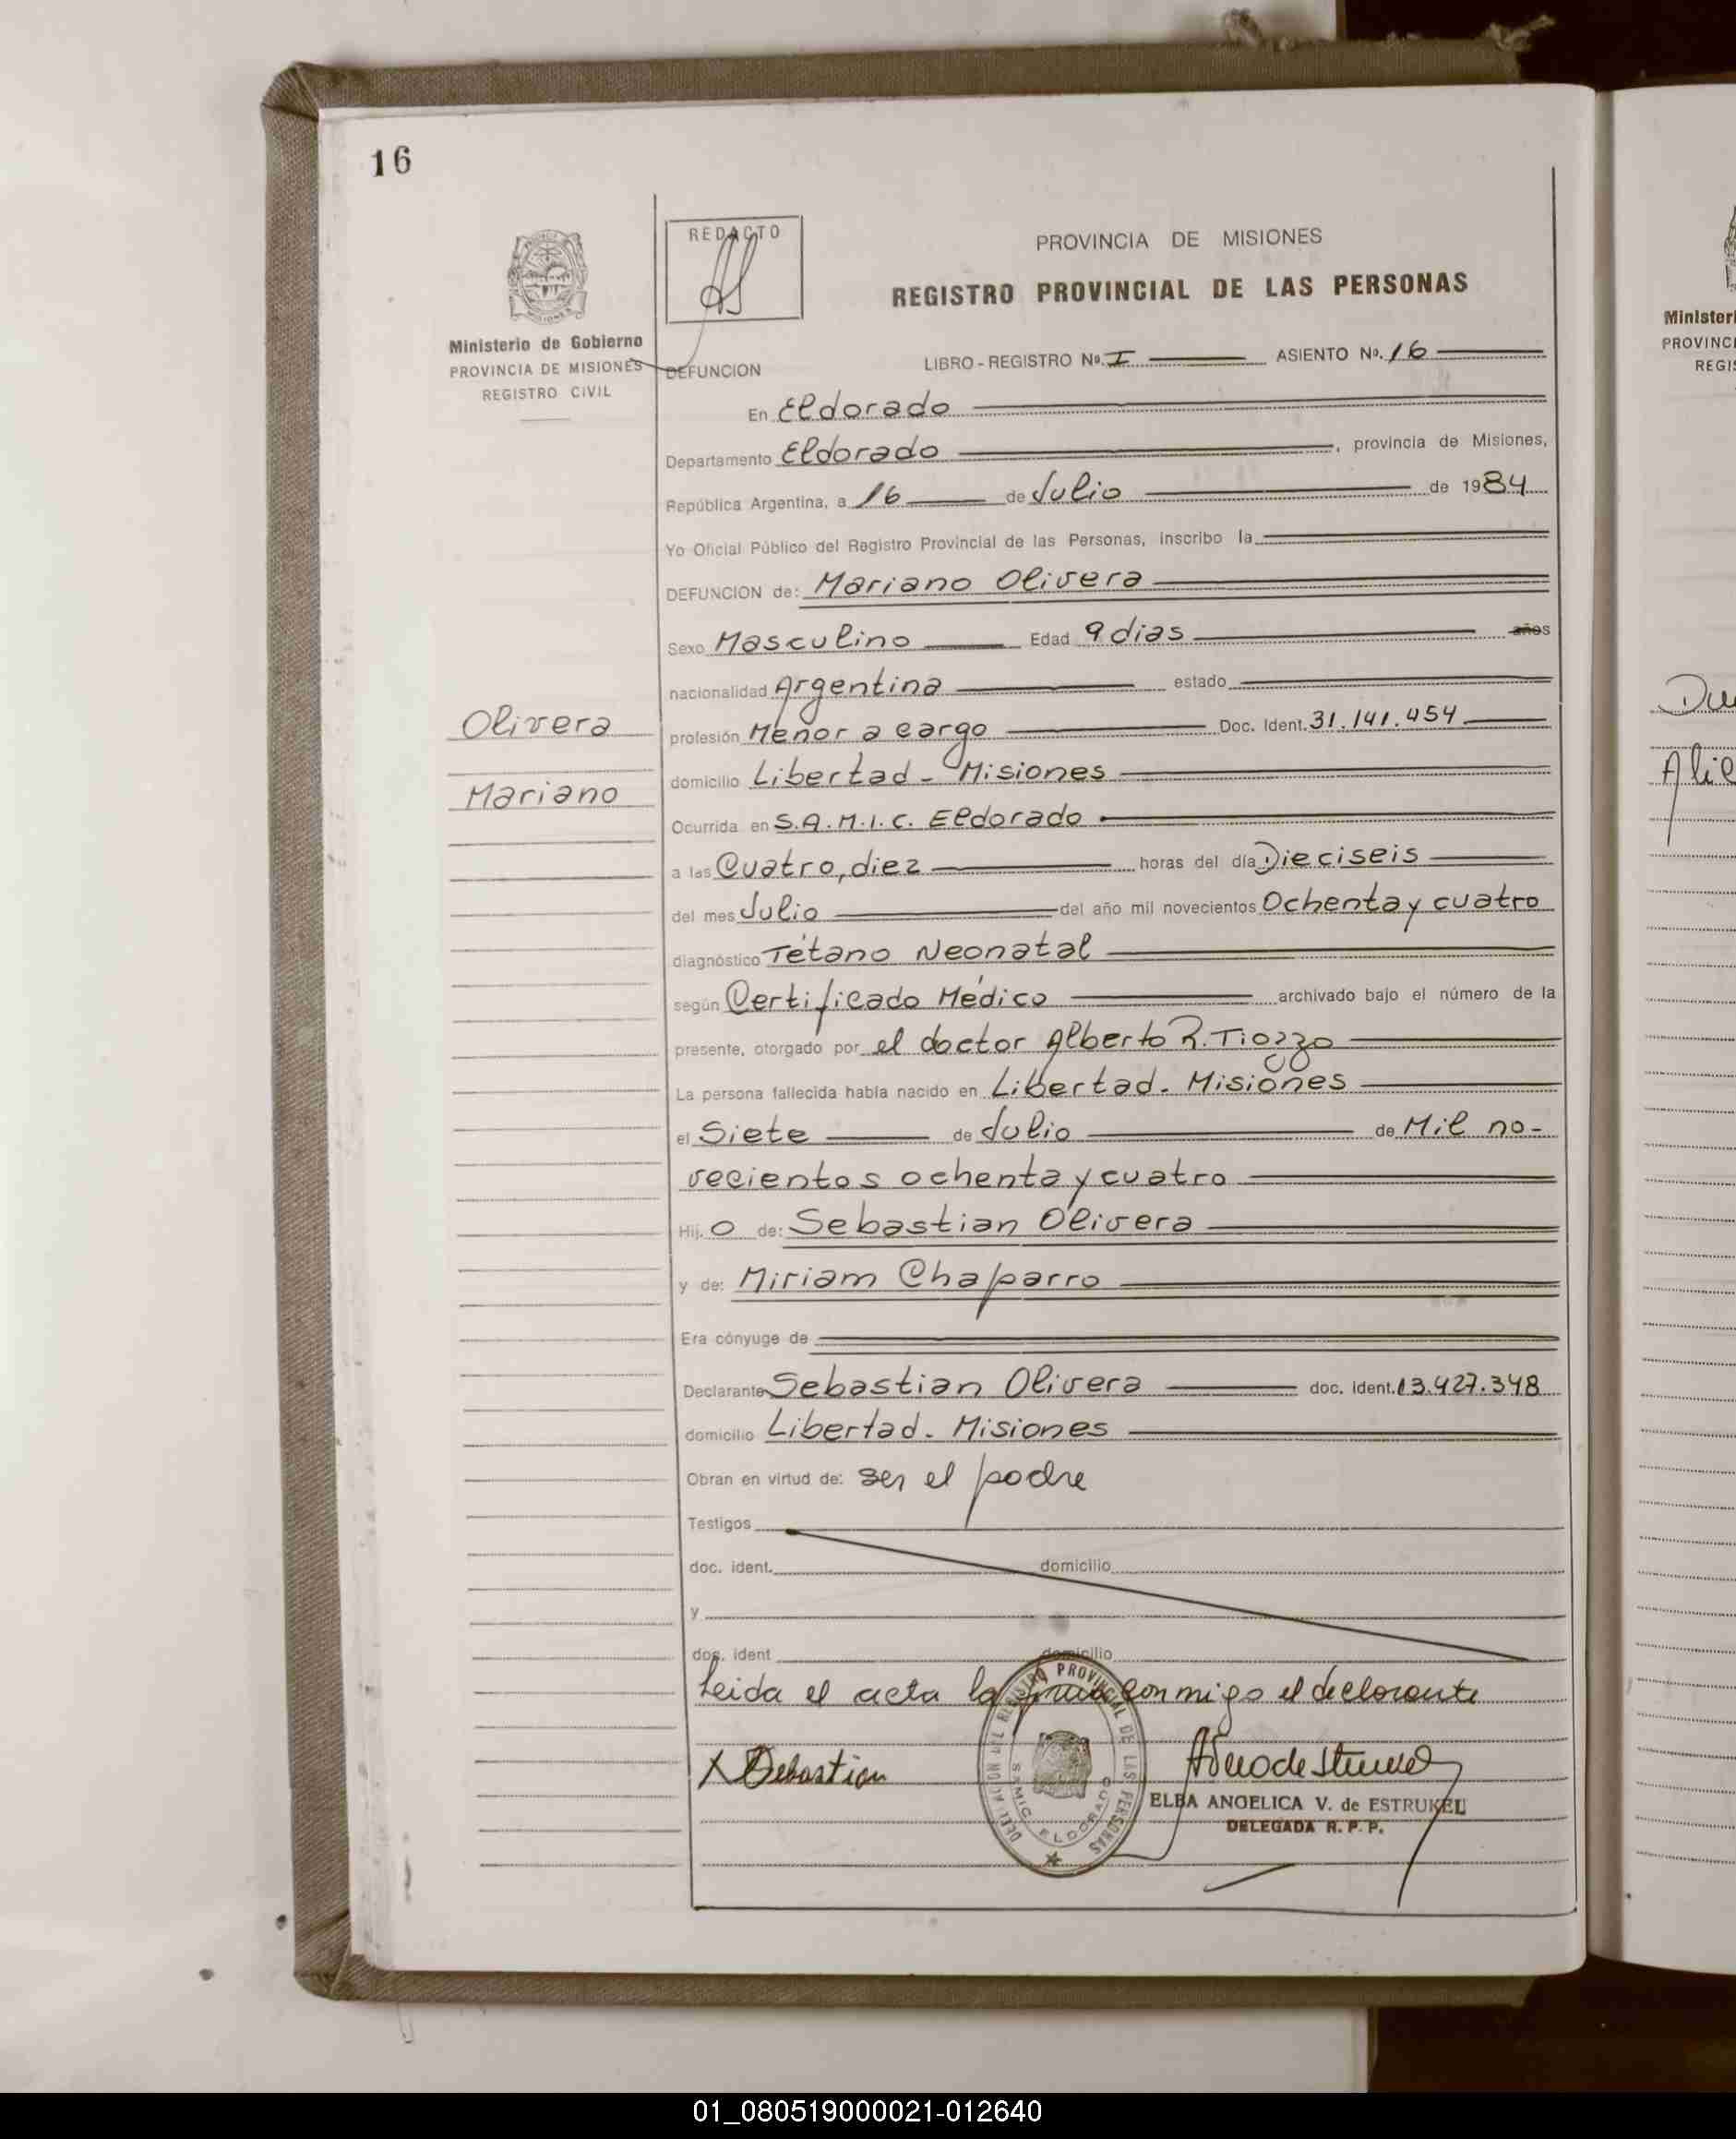 16
REDACTO
PROVINCIA DE MISIONES
REGISTRO PROVINCIAL DE LAS PERSONAS
Ministerio de Gobierno
PROVINCIA DE MISIONES
REGISTRO CIVIL
DEFUNCION
LIBRO - REGISTRO Nº. I ASIENTO Nº. 16
En Eldorado
Departamento Eldorado, provincia de Misiones,
República Argentina, a 16 de Julio de 1984
Yo Oficial Público del Registro Provincial de las Personas, inscribo la
DEFUNCION de: Mariano Olivera
Sexo Masculino Edad 9 dias años
nacionalidad Argentina estado
Olivera
Mariano
profesión Menor a cargo Doc. Ident. 31.141.454
domicilio Libertad - Misiones
Ocurrida en S.A.M.I.C. Eldorado
a las Cuatro, diez horas del día Dieciseis
del mes Julio del año mil novecientos Ochenta y cuatro
diagnóstico Tétano Neonatal
según Certificado Médico archivado bajo el número de la
presente, otorgado por el doctor Alberto R. Tiozzo
La persona fallecida había nacido en Libertad - Misiones
el Siete de Julio de Mil no-
vecientos ochenta y cuatro
Hij o de: Sebastian Olivera
y de: Miriam Chaparro
Era cónyuge de
Declarante Sebastian Olivera doc. ident. 13.427.348
domicilio Libertad - Misiones
Obran en virtud de: ser el padre
Testigos
doc. ident. domicilio
y
doc. ident domicilio
Leida el acta la firma conmigo el declarante
X Sebastian
REGISTRO PROVINCIAL DE LAS PERSONAS
SAMIC ELDORADO
ELBA ANGELICA V. de ESTRUKEL
DELEGADA R. P. P.
Minister
PROVINC
REGIS
Du
Alic
01_080519000021-012640